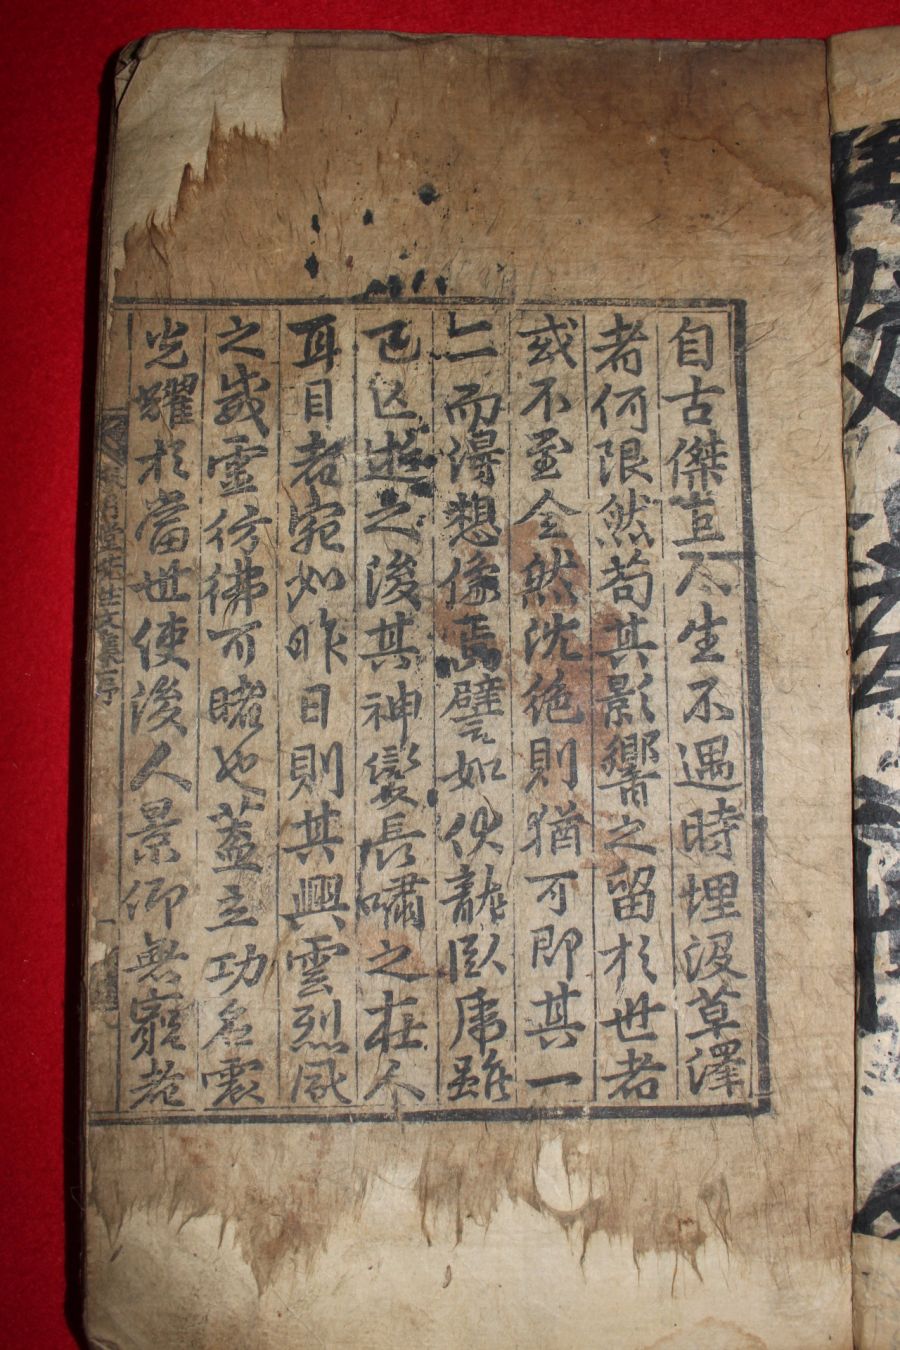 自古傑荁人生不遇時埋沒草澤
者何限然苟其影響之留於世者
或不至全然沈絶則猶可即其一
二而得想像焉譬如伏龍臥席雖
已亾逝之後其神變長嘯之在人
耳目者宛如昨日則其興雲烈風
之威靈彷彿可睹也蓋立功名震
光耀於當世使後人景仰無窮者
堂先生文集序